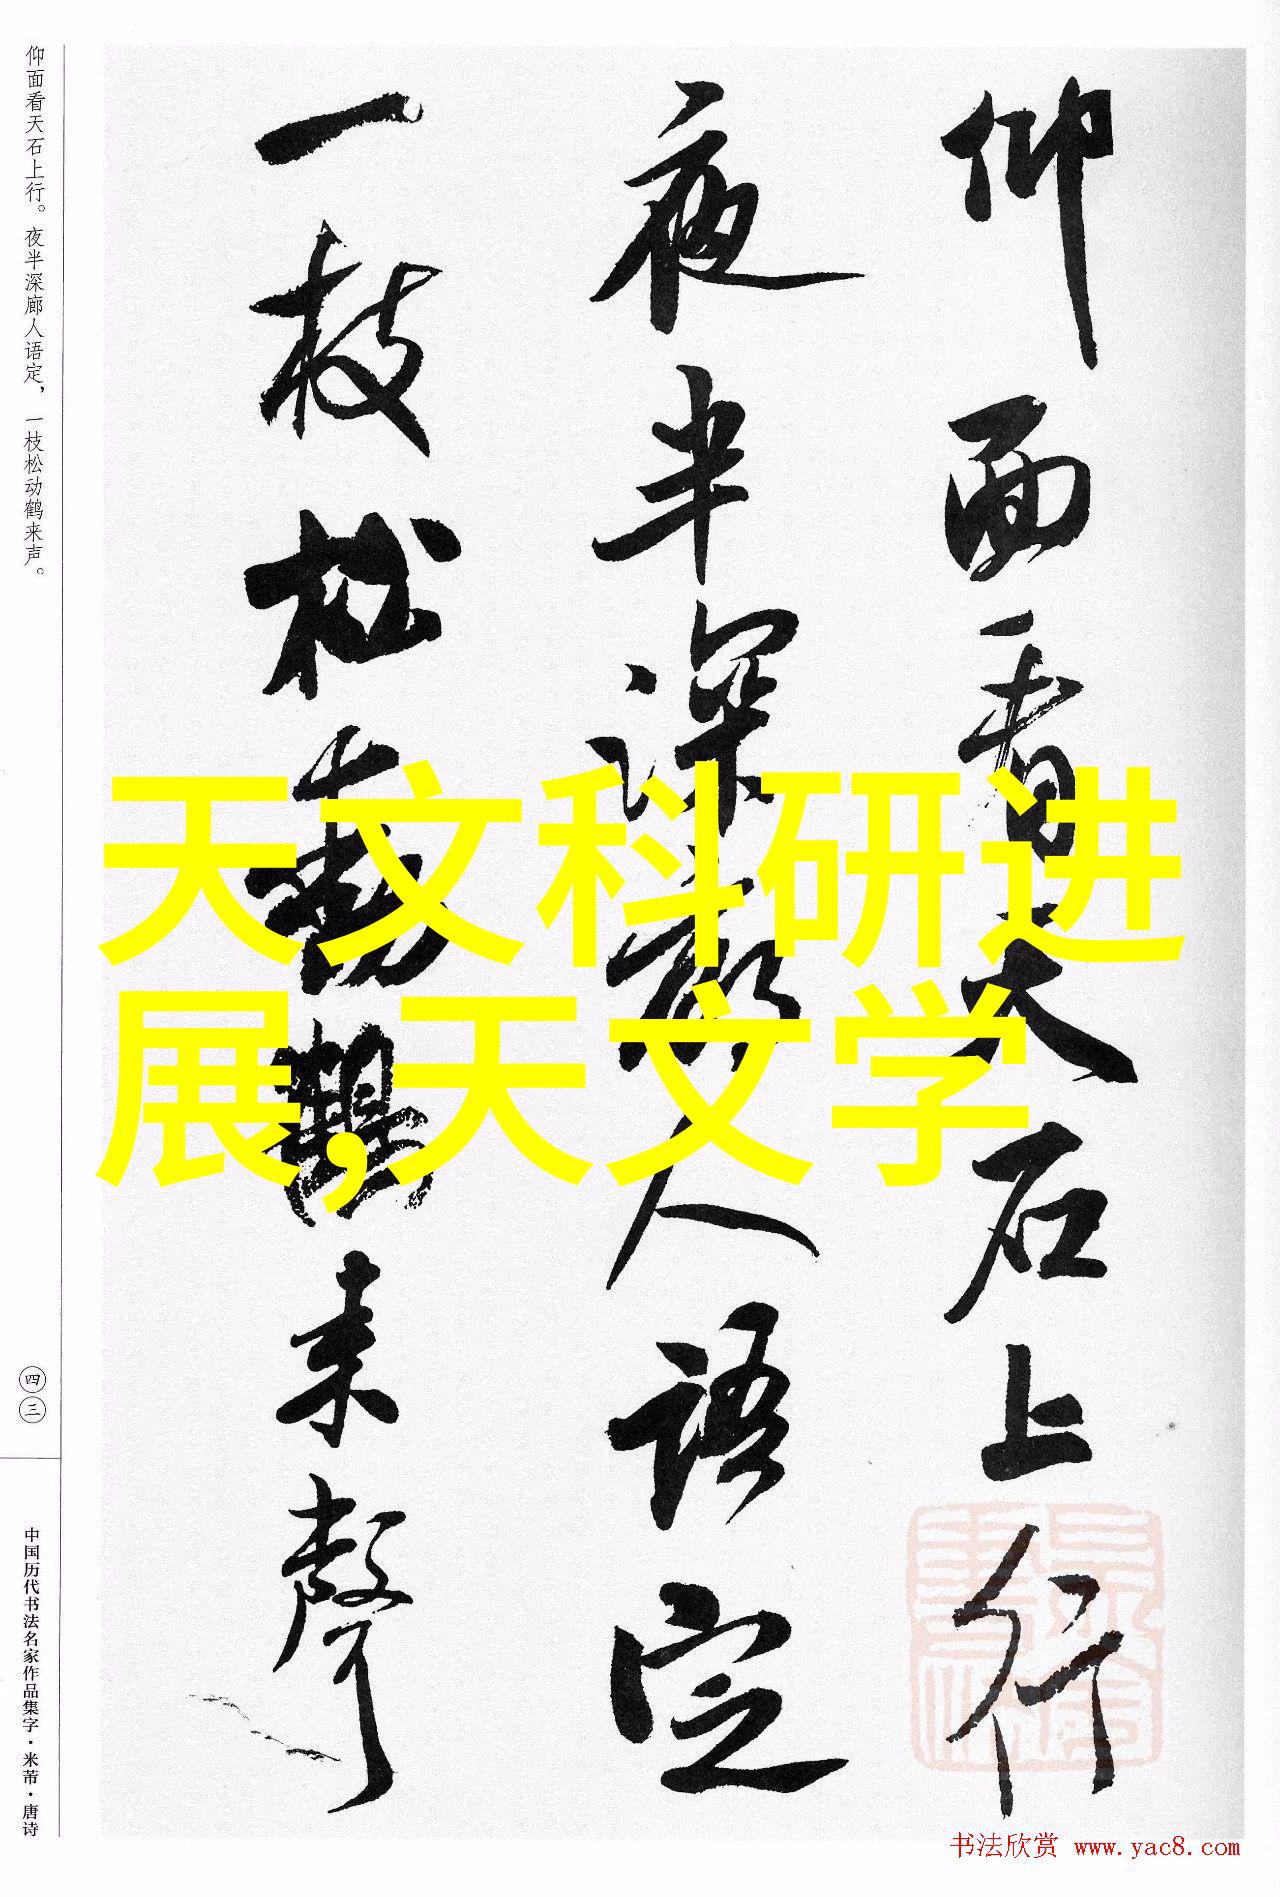 仰面看天石上行
夜半深廊人语定
一枝松動鶴来聲
仰面看天石上行。夜半深廊人语定，一枝松动鹤来声。
四三
中国历代书法名家作品集字·米芾·唐诗
天文科研进
展,天文学
书法欣赏 www.yac8.com